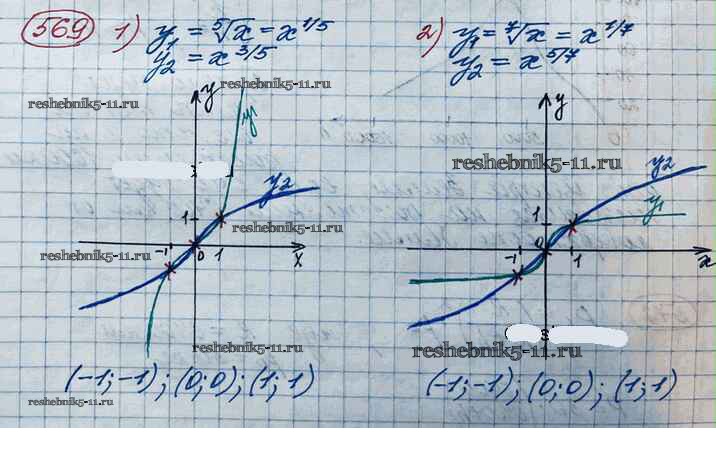 569 1) y₁ = ⁵√x = x^1/5
y₂ = x^3/5
2) y₁ = ⁷√x = x^1/7
y₂ = x^5/7
reshebnik5-11.ru
reshebnik5-11.ru
y
y₁
y₂
1
-1 0 1 x
reshebnik5-11.ru
reshebnik5-11.ru
(-1; -1); (0; 0); (1; 1)
reshebnik5-11.ru
y
reshebnik5-11.ru
y₂
y₁
1
0
-1 1 x
reshebnik5-11.ru
reshebnik5-11.ru
(-1; -1); (0; 0); (1; 1)